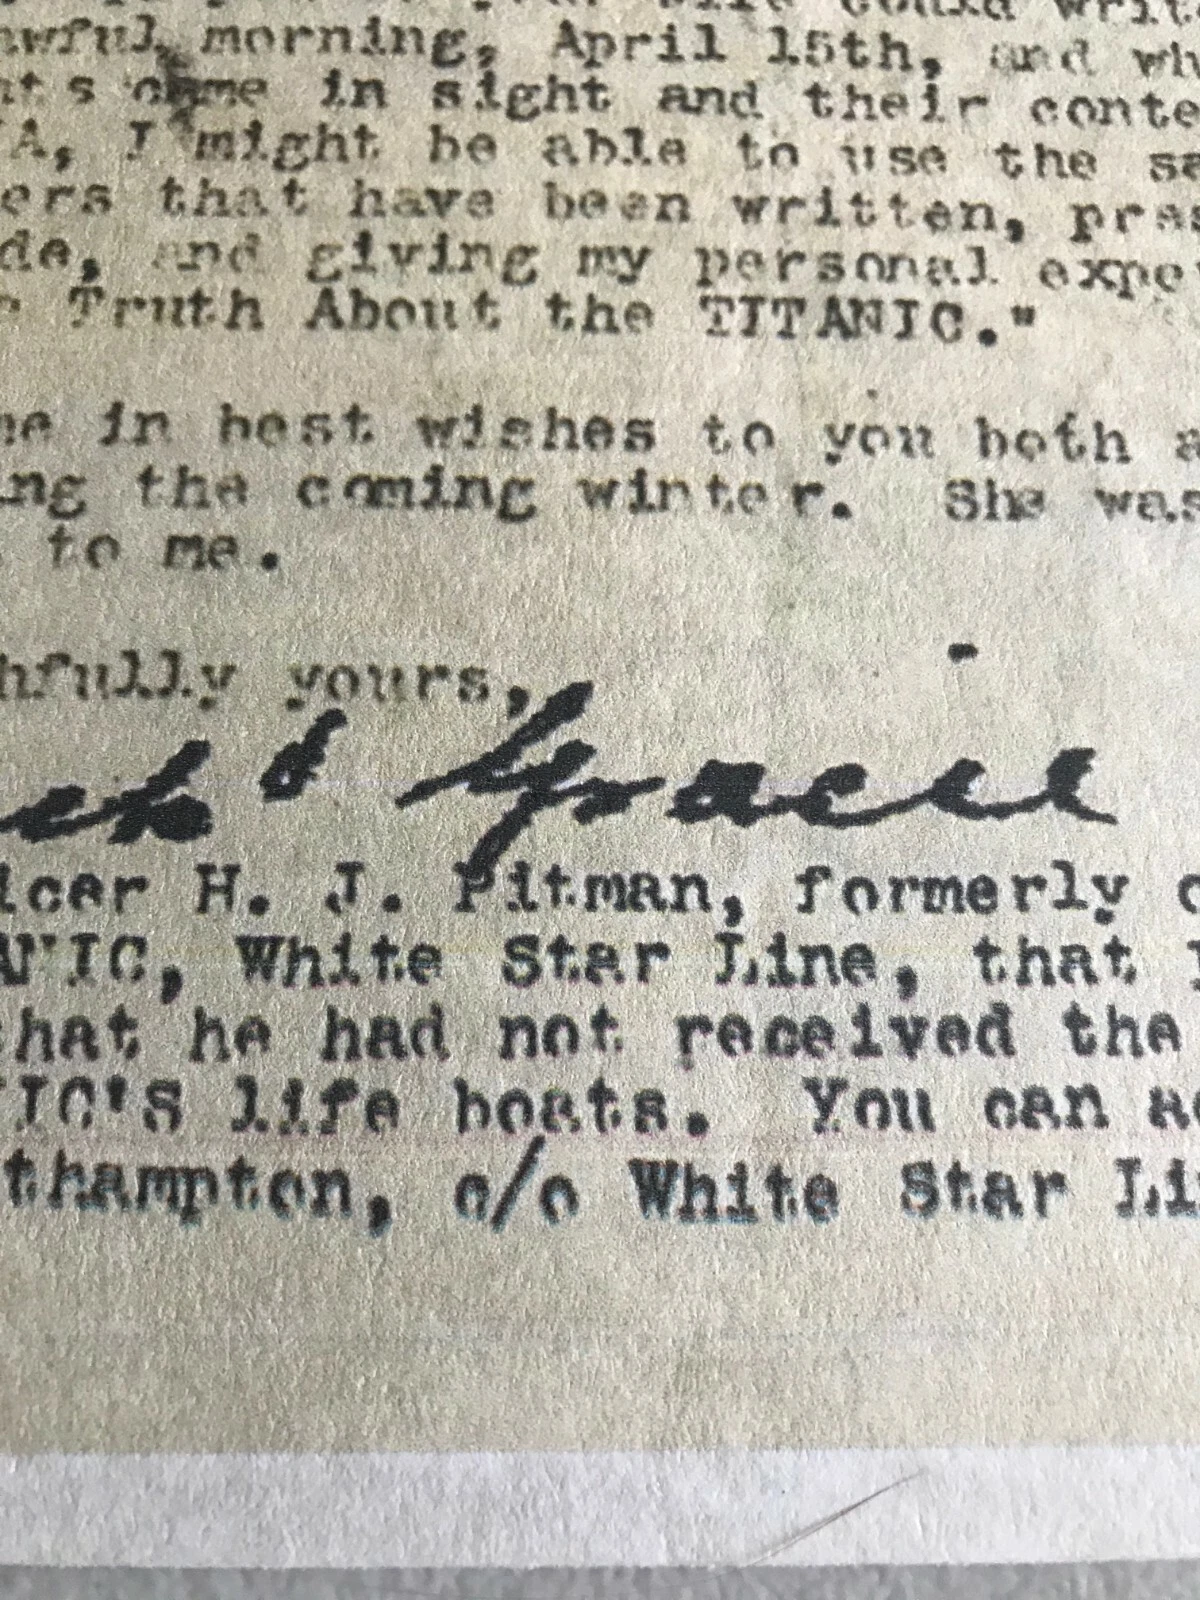 awful morning, April 15th, and wh
ts came in sight and their conte
A, I might be able to use the sa
ers that have been written, pres
de, and giving my personal expe
Truth About the TITANIC."
ne in best wishes to you both a
ing the coming winter. She was
to me.
hfully yours,
Gracie
icer H. J. Pitman, formerly o
ANIC, White Star Line, that
that he had not received the
IC'S life boats. You can a
thampton, c/o White Star Li